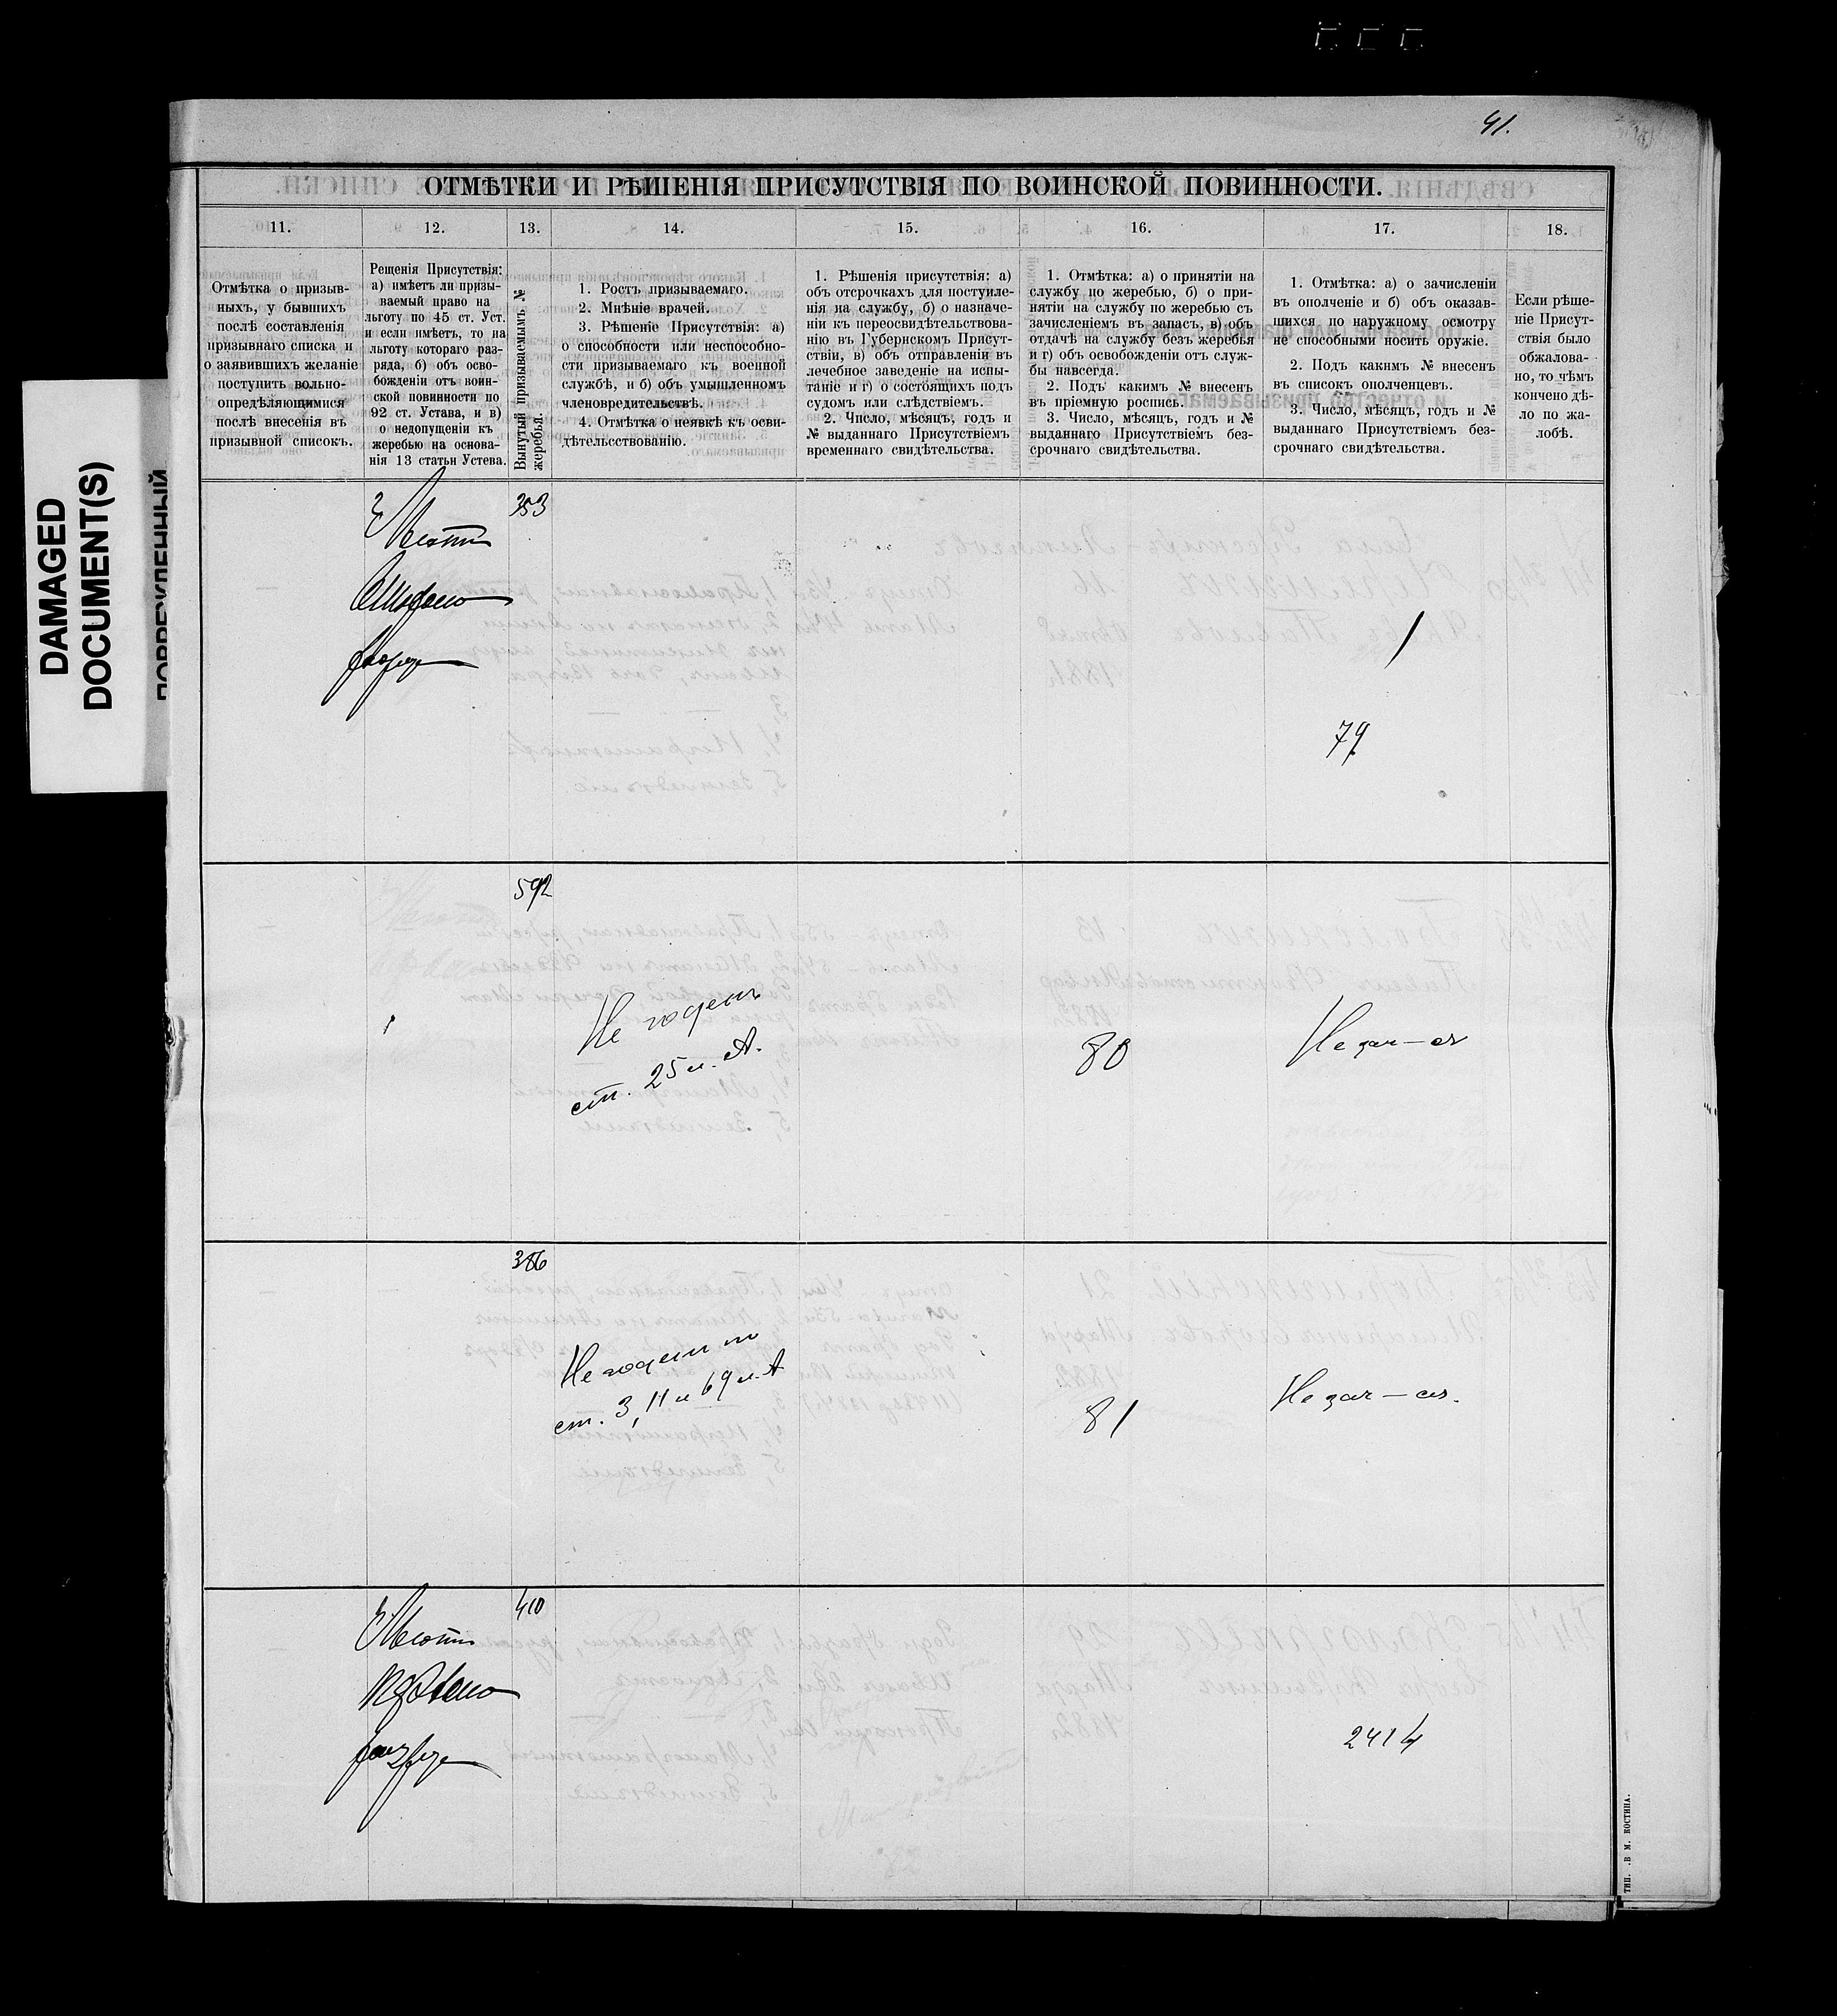 41.
DAMAGED
DOCUMENT(S)
ПОВРЕЖДЕННЫЙ
ОТМѢТКИ И РѢШЕНІЯ ПРИСУТСТВІЯ ПО ВОИНСКОЙ ПОВИННОСТИ.
11.
12.
13.
14.
15.
16.
17.
18.
Отмѣтка о призыв-
ныхъ, у бывшихъ
послѣ составленія
призывнаго списка и
о заявившихъ желаніе
поступить вольно-
опредѣляющимися
послѣ внесенія въ
призывной списокъ.
Рещенія Присутствія:
а) имѣетъ ли призы-
ваемый право на
льготу по 45 ст. Уст.
и если имѣетъ, то на
льготу котораго раз-
ряда, б) объ осво-
божденіи отъ воин-
ской повинности по
92 ст. Устава, и в)
о недопущеніи къ
жеребью на основа-
нія 13 статьи Устева.
Вынутый призываемымъ №
жеребья.
1. Ростъ призываемаго.
2. Мнѣніе врачей.
3. Рѣшеніе Присутствія: а)
о способности или неспособно-
сти призываемаго къ военной
службѣ, и б) объ умышленномъ
членовредительствѣ.
4. Отмѣтка о неявкѣ къ осви-
дѣтельсствованію.
1. Рѣшенія присутствія: а)
объ отсрочкахъ для поступле-
нія на службу, б) о назначе-
ніи къ переосвидѣтельствова-
нію въ Губернскомъ Присут-
ствіи, в) объ отправленіи въ
лечебное заведеніе на испы-
таніе и г) о состоящихъ подъ
судомъ или слѣдствіемъ.
2. Число, мѣсяцъ, годъ и
№ выданнаго Присутствіемъ
временнаго свидѣтельства.
1. Отмѣтка: а) о принятіи на
службу по жеребью, б) о при-
нятіи на службу по жеребью съ
зачисленіемъ въ запасъ, в) объ
отдачѣ на службу безъ жеребья
и г) объ освобожденіи отъ служ-
бы навсегда.
2. Подъ какимъ № внесенъ
въ пріемную роспись.
3. Число, мѣсяцъ, годъ и №
выданнаго Присутствіемъ без-
срочнаго свидѣтельства.
1. Отмѣтка: а) о зачисленіи
въ ополченіе и б) объ оказав-
шихся по наружному осмотру
не способными носить оружіе.
2. Подъ какимъ № внесенъ
въ списокъ ополченцевъ.
3. Число, мѣсяцъ, годъ и №
выданнаго Присутствіемъ без-
срочнаго свидѣтельства.
Если рѣше-
ніе Присут-
ствія было
обжалова-
но, то чѣмъ
кончено дѣ-
ло по жа-
лобѣ.
353
79
592
Не годенъ
ст. 25 л. А.
80
Не зач—ся
386
Не годенъ по
ст. 3, 11 и 69 л. А
81
Не зач—ся.
410
2414
ТИП. .В М. КОСТИНА.